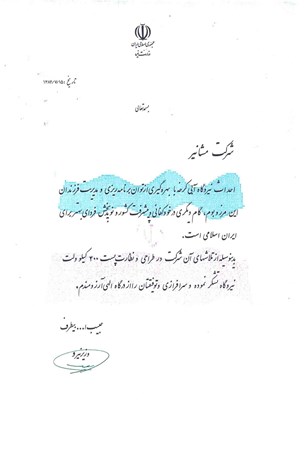 جمهوری اسلامی ایران
وزارت نیرو
تاریخ
بسمه تعالی
شرکت مشانیر
احداث نیروگاه آبی کرخه با بهره گیری از توان برنامه ریزی و مدیریت فرزندان
این مرز و بوم، گام دیگری در خودکفائی و پیشرفت کشور و نوید بخش فردای بهتر برای
ایران اسلامی است.
بدینوسیله از تلاشهای آن شرکت در طراحی و نظارت پست ۴۰۰ کیلو ولت
نیروگاه تشکر نموده و سرافرازی و توفیقتان را از درگاه الهی آرزومندم.
حبیب ا... بیطرف
وزیر نیرو